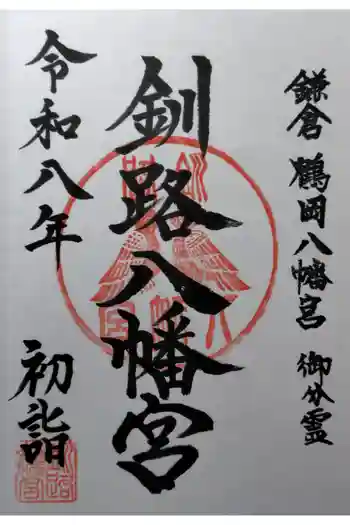 鎌倉 鶴岡八幡宮 御分霊
釧路八幡宮
令和八年
初詣